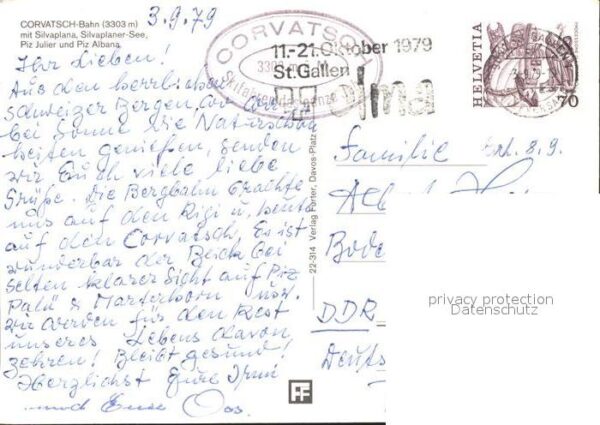 CORVATSCH-Bahn (3303 m)
mit Silvaplana, Silvaplaner-See,
Piz Julier und Piz Albana
3.9.79
Ihr Lieben!
Aus den herrlichen
Schweizer Bergen, wo wir
bei Sonne die Naturschön
heiten genießen, senden
wir Euch viele liebe
Grüße. Die Bergbahn brachte
uns auf den Rigi u. heute
auf den Corvatsch. Es ist
wunderbar der Blick bei
selten klarer Sicht auf Piz
Palü & Matterhorn usw.
Wir werden für den Rest
unseres Lebens davon
zehren! Bleibt gesund!
Herzlichst Eure Irmi
und Euer
CORVATSCH
3303 m
11.-21. Oktober 1979
St. Gallen
olma
HELVETIA
70
22-314 Verlag Furter, Davos-Platz
Familie
Erl. 8.9.
DDR
privacy protection
Datenschutz